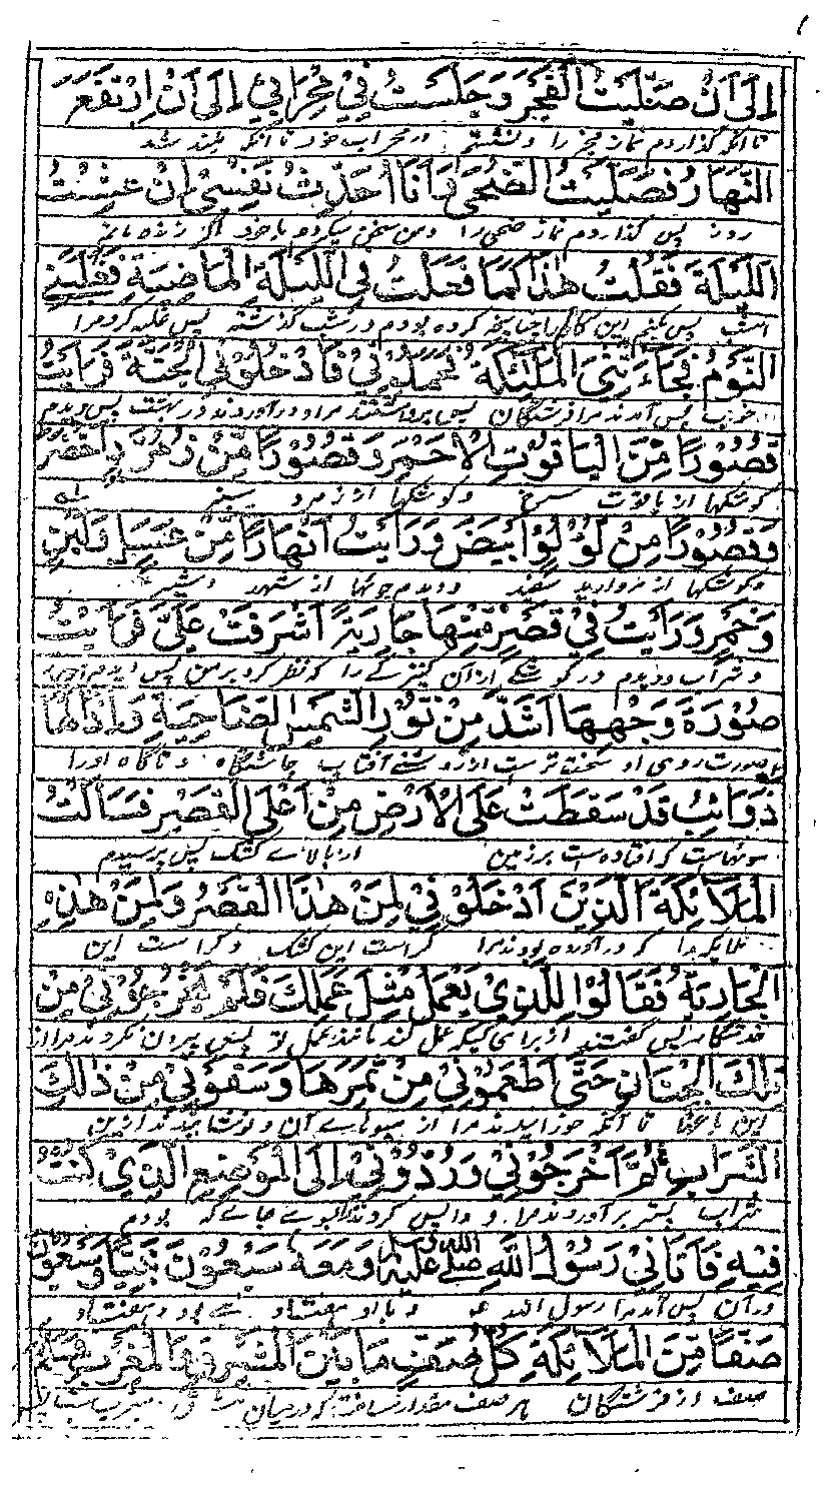 إِلَى أَنْ صَلَّيْتُ الْفَجْرَ وَجَلَسْتُ فِي مِحْرَابِي إِلَى أَنِ ارْتَفَعَ
تا آنکه گذاردم نماز فجر را و نشستم در محراب خود تا آنکه بلند شد
النَّهَارُ فَصَلَّيْتُ الضُّحَى وَأَنَا أُحَدِّثُ نَفْسِي إِنْ عِشْتُ
روز پس گذاردم نماز ضحی را ومن سخن میکردم با خود اگر زنده مانم
اللَّيْلَةَ فَقُلْتُ هٰذَا كَمَا فَعَلْتُ فِي اللَّيْلَةِ الْمَاضِيَةِ فَغَلَبَنِي
امشب پس این کار را چنانچه کرده بودم در شب گذشته پس غلبه کرد مرا
النَّوْمُ فَجَاءَتْنِيَ الْمَلٰئِكَةُ فَأَدْخَلُوْنِي الْجَنَّةَ فَرَأَيْتُ
خواب پس آمدند مرا فرشتگان پس برداشتند مرا و در آوردند در بهشت پس دیدم
قُصُوْرًا مِّنَ الْيَاقُوْتِ الْأَحْمَرِ وَقُصُوْرًا مِّنْ زُمُرُّدٍ أَخْضَرَ
کوشکها از یاقوت سرخ وکوشکها از زمرد سبز
وَقُصُوْرًا مِنْ لُؤْلُؤٍ أَبْيَضَ وَرَأَيْتُ أَنْهَارًا مِّنْ عَسَلٍ وَلَبَنٍ
وکوشکها از مروارید سفید ودیدم جویها از شهد وشیر
وَخَمْرٍ وَرَأَيْتُ فِي قَصْرٍ مِّنْهَا جَارِيَةً أَشْرَفَتْ عَلَيَّ فَرَأَيْتُ
و شراب ودیدم در کوشکے از آن کنیزکے را که نظر کرد بر من پس دیدم
صُوْرَةَ وَجْهِهَا أَشَدَّ مِنْ نُوْرِ الشَّمْسِ الضَّاحِيَةِ وَإِذَا لَهَا
صورت روی او سخت تر است از روشنے آفتاب چاشتگاه و ناگاه او را
ذَوَائِبُ قَدْ سَقَطَتْ عَلَى الْأَرْضِ مِنْ أَعْلَى الْقَصْرِ فَسَأَلْتُ
مویهاست که افتاده است بر زمین از بالاے کشک پس پرسیدم
الْمَلَائِكَةَ الَّذِيْنَ أَدْخَلُوْنِي لِمَنْ هٰذَا الْقَصْرُ وَلِمَنْ هٰذِهِ
ملایکه را که در آورده بودند مرا کراست این کشک وکراست این
الْجَارِيَةُ فَقَالُوْا لِلَّذِيْ يَعْمَلُ مِثْلَ عَمَلِكَ فَلَمْ يُخْرِجُوْنِي مِنْ
پس گفتند از برای کسیکه عمل کند مانند عمل تو پس بیرون نکردند مرا از
تِلْكَ الْجِنَانِ حَتّٰى أَطْعَمُوْنِي مِنْ ثَمَرِهَا وَسَقَوْنِي مِنْ ذٰلِكَ
این باغها تا آنکه خورانیدند مرا از میوهاے آن و نوشانیدند از این
الشَّرَابِ ثُمَّ أَخْرَجُوْنِي وَرَدُّوْنِي إِلَى الْمَوْضِعِ الَّذِيْ كُنْتُ
شراب پستر بر آوردند مرا و واپس کردند مرا بسوے جائے که بودم
فِيْهِ فَأَتَانِي رَسُوْلُ اللَّهِ صلى الله عليه وسلم وَمَعَهُ سَبْعُوْنَ نَبِيًّا وَسَبْعُوْنَ
در آن پس آمد مرا رسول الله و با او هفتاد نبے بود و هفتاد
صَفًّا مِّنَ الْمَلَائِكَةِ كُلُّ صَفٍّ مَا بَيْنَ الْمَشْرِقِ وَالْمَغْرِبِ
صف از فرشتگان هر صف مقدار مسافت که درمیان